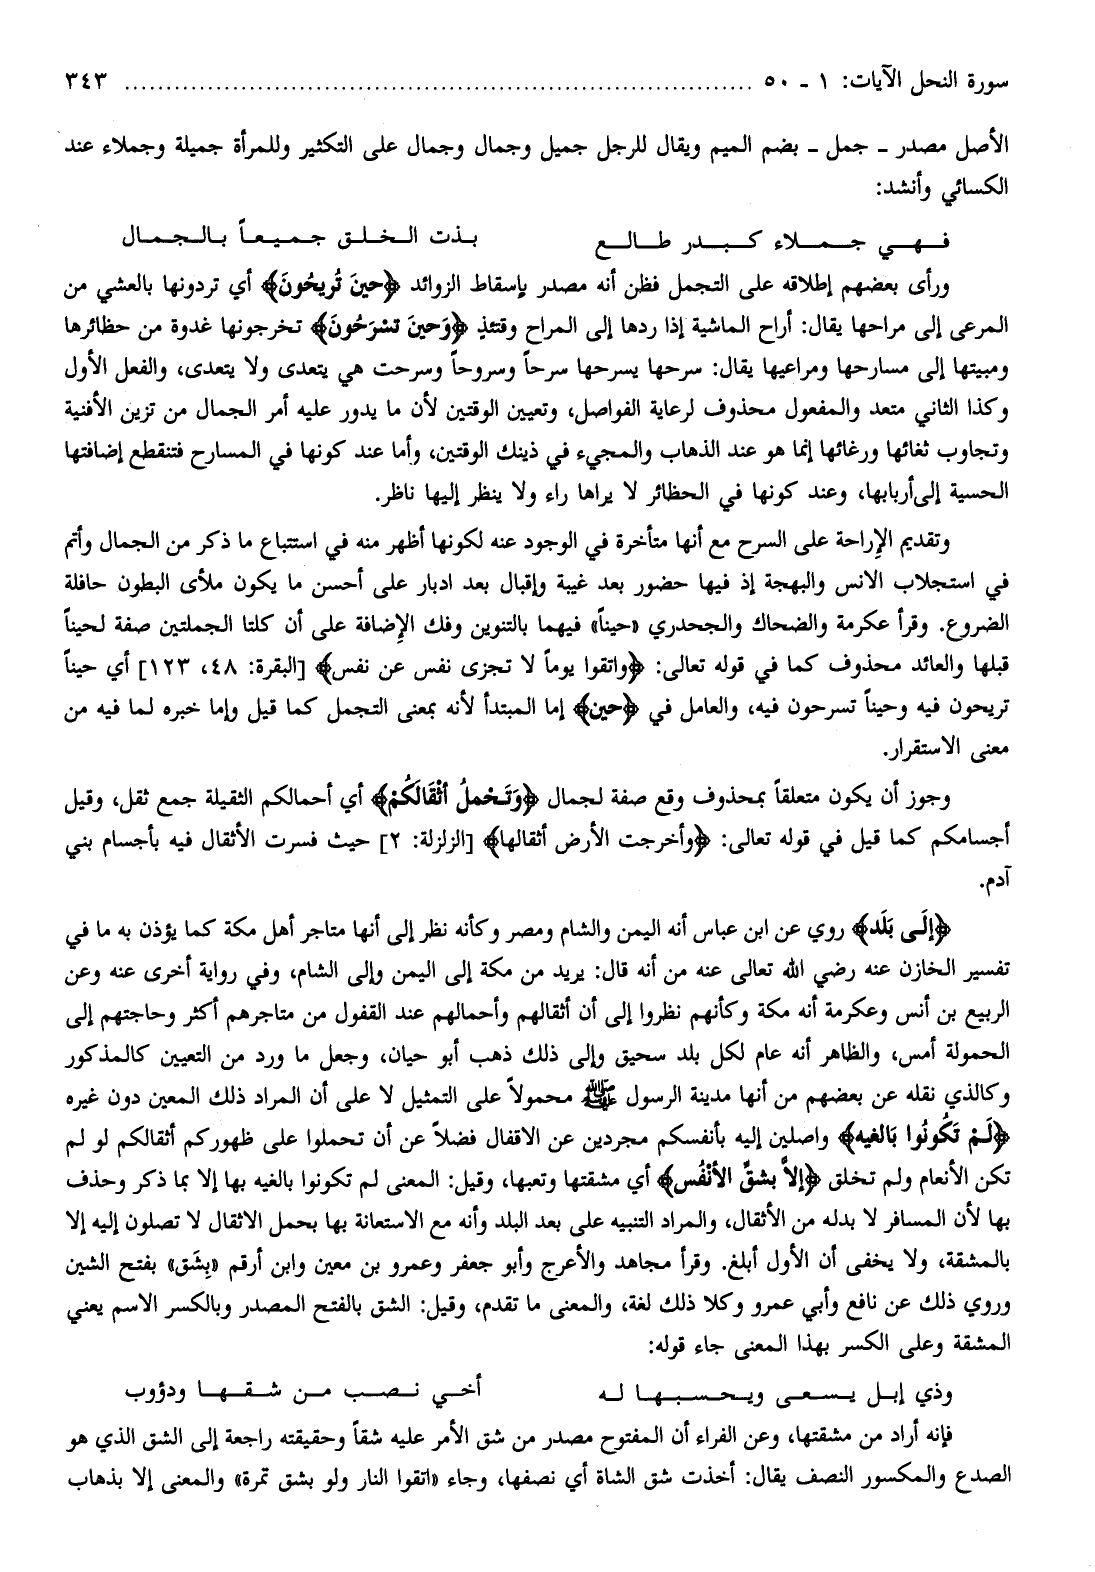 سورة النحل الآيات: ١ ـ ٥٠ ........................................................................... ٣٤٣
الأصل مصدر ـ جمل ـ بضم الميم ويقال للرجل جميل وجمال وجمال على التكثير وللمرأة جميلة وجملاء عند
الكسائي وأنشد:
فهي جملاء كبدر طالع    بذت الخلق جميعاً بالجمال
ورأى بعضهم إطلاقه على التجمل فظن أنه مصدر بإسقاط الزوائد ﴿حينَ تُريحُونَ﴾ أي تردونها بالعشي من
المرعى إلى مراحها يقال: أراح الماشية إذا ردها إلى المراح وقتئذٍ ﴿وَحينَ تسْرَحُونَ﴾ تخرجونها غدوة من حظائرها
ومبيتها إلى مسارحها ومراعيها يقال: سرحها يسرحها سرحاً وسروحاً وسرحت هي يتعدى ولا يتعدى، والفعل الأول
وكذا الثاني متعد والمفعول محذوف لرعاية الفواصل، وتعيين الوقتين لأن ما يدور عليه أمر الجمال من تزين الأفنية
وتجاوب ثغائها ورغائها إنما هو عند الذهاب والمجيء في ذينك الوقتين، وأما عند كونها في المسارح فتنقطع إضافتها
الحسية إلى أربابها، وعند كونها في الحظائر لا يراها راء ولا ينظر إليها ناظر.
وتقديم الإراحة على السرح مع أنها متأخرة في الوجود عنه لكونها أظهر منه في استتباع ما ذكر من الجمال وأتم
في استجلاب الانس والبهجة إذ فيها حضور بعد غيبة وإقبال بعد ادبار على أحسن ما يكون ملأى البطون حافلة
الضروع. وقرأ عكرمة والضحاك والجحدري «حيناً» فيهما بالتنوين وفك الإضافة على أن كلتا الجملتين صفة لحيناً
قبلها والعائد محذوف كما في قوله تعالى: ﴿واتقوا يوماً لا تجزى نفس عن نفس﴾ [البقرة: ٤٨، ١٢٣] أي حيناً
تريحون فيه وحيناً تسرحون فيه، والعامل في ﴿حين﴾ إما المبتدأ لأنه بمعنى التجمل كما قيل وإما خبره لما فيه من
معنى الاستقرار.
وجوز أن يكون متعلقاً بمحذوف وقع صفة لجمال ﴿وَتَحْملُ أثْقَالَكُمْ﴾ أي أحمالكم الثقيلة جمع ثقل، وقيل
أجسامكم كما قيل في قوله تعالى: ﴿وأخرجت الأرض أثقالها﴾ [الزلزلة: ٢] حيث فسرت الأثقال فيه بأجسام بني
آدم.
﴿إلَى بَلَد﴾ روي عن ابن عباس أنه اليمن والشام ومصر وكأنه نظر إلى أنها متاجر أهل مكة كما يؤذن به ما في
تفسير الخازن عنه رضي الله تعالى عنه من أنه قال: يريد من مكة إلى اليمن وإلى الشام، وفي رواية أخرى عنه وعن
الربيع بن أنس وعكرمة أنه مكة وكأنهم نظروا إلى أن أثقالهم وأحمالهم عند القفول من متاجرهم أكثر وحاجتهم إلى
الحمولة أمس، والظاهر أنه عام لكل بلد سحيق وإلى ذلك ذهب أبو حيان، وجعل ما ورد من التعيين كالمذكور
وكالذي نقله عن بعضهم من أنها مدينة الرسول ﷺ محمولاً على التمثيل لا على أن المراد ذلك المعين دون غيره
﴿لَمْ تَكُونُوا بَالغيه﴾ واصلين إليه بأنفسكم مجردين عن الاقفال فضلاً عن أن تحملوا على ظهوركم أثقالكم لو لم
تكن الأنعام ولم تخلق ﴿إلاَّ بشقِّ الأنْفُس﴾ أي مشقتها وتعبها، وقيل: المعنى لم تكونوا بالغيه بها إلا بما ذكر وحذف
بها لأن المسافر لا بدله من الأثقال، والمراد التنبيه على بعد البلد وأنه مع الاستعانة بها بحمل الاثقال لا تصلون إليه إلا
بالمشقة، ولا يخفى أن الأول أبلغ. وقرأ مجاهد والأعرج وأبو جعفر وعمرو بن معين وابن أرقم «بِشَق» بفتح الشين
وروي ذلك عن نافع وأبي عمرو وكلا ذلك لغة، والمعنى ما تقدم، وقيل: الشق بالفتح المصدر وبالكسر الاسم يعني
المشقة وعلى الكسر بهذا المعنى جاء قوله:
وذي إبل يسعى ويحسبها له    أخي نصب من شقها ودؤوب
فإنه أراد من مشقتها، وعن الفراء أن المفتوح مصدر من شق الأمر عليه شقاً وحقيقته راجعة إلى الشق الذي هو
الصدع والمكسور النصف يقال: أخذت شق الشاة أي نصفها، وجاء «اتقوا النار ولو بشق تمرة» والمعنى إلا بذهاب